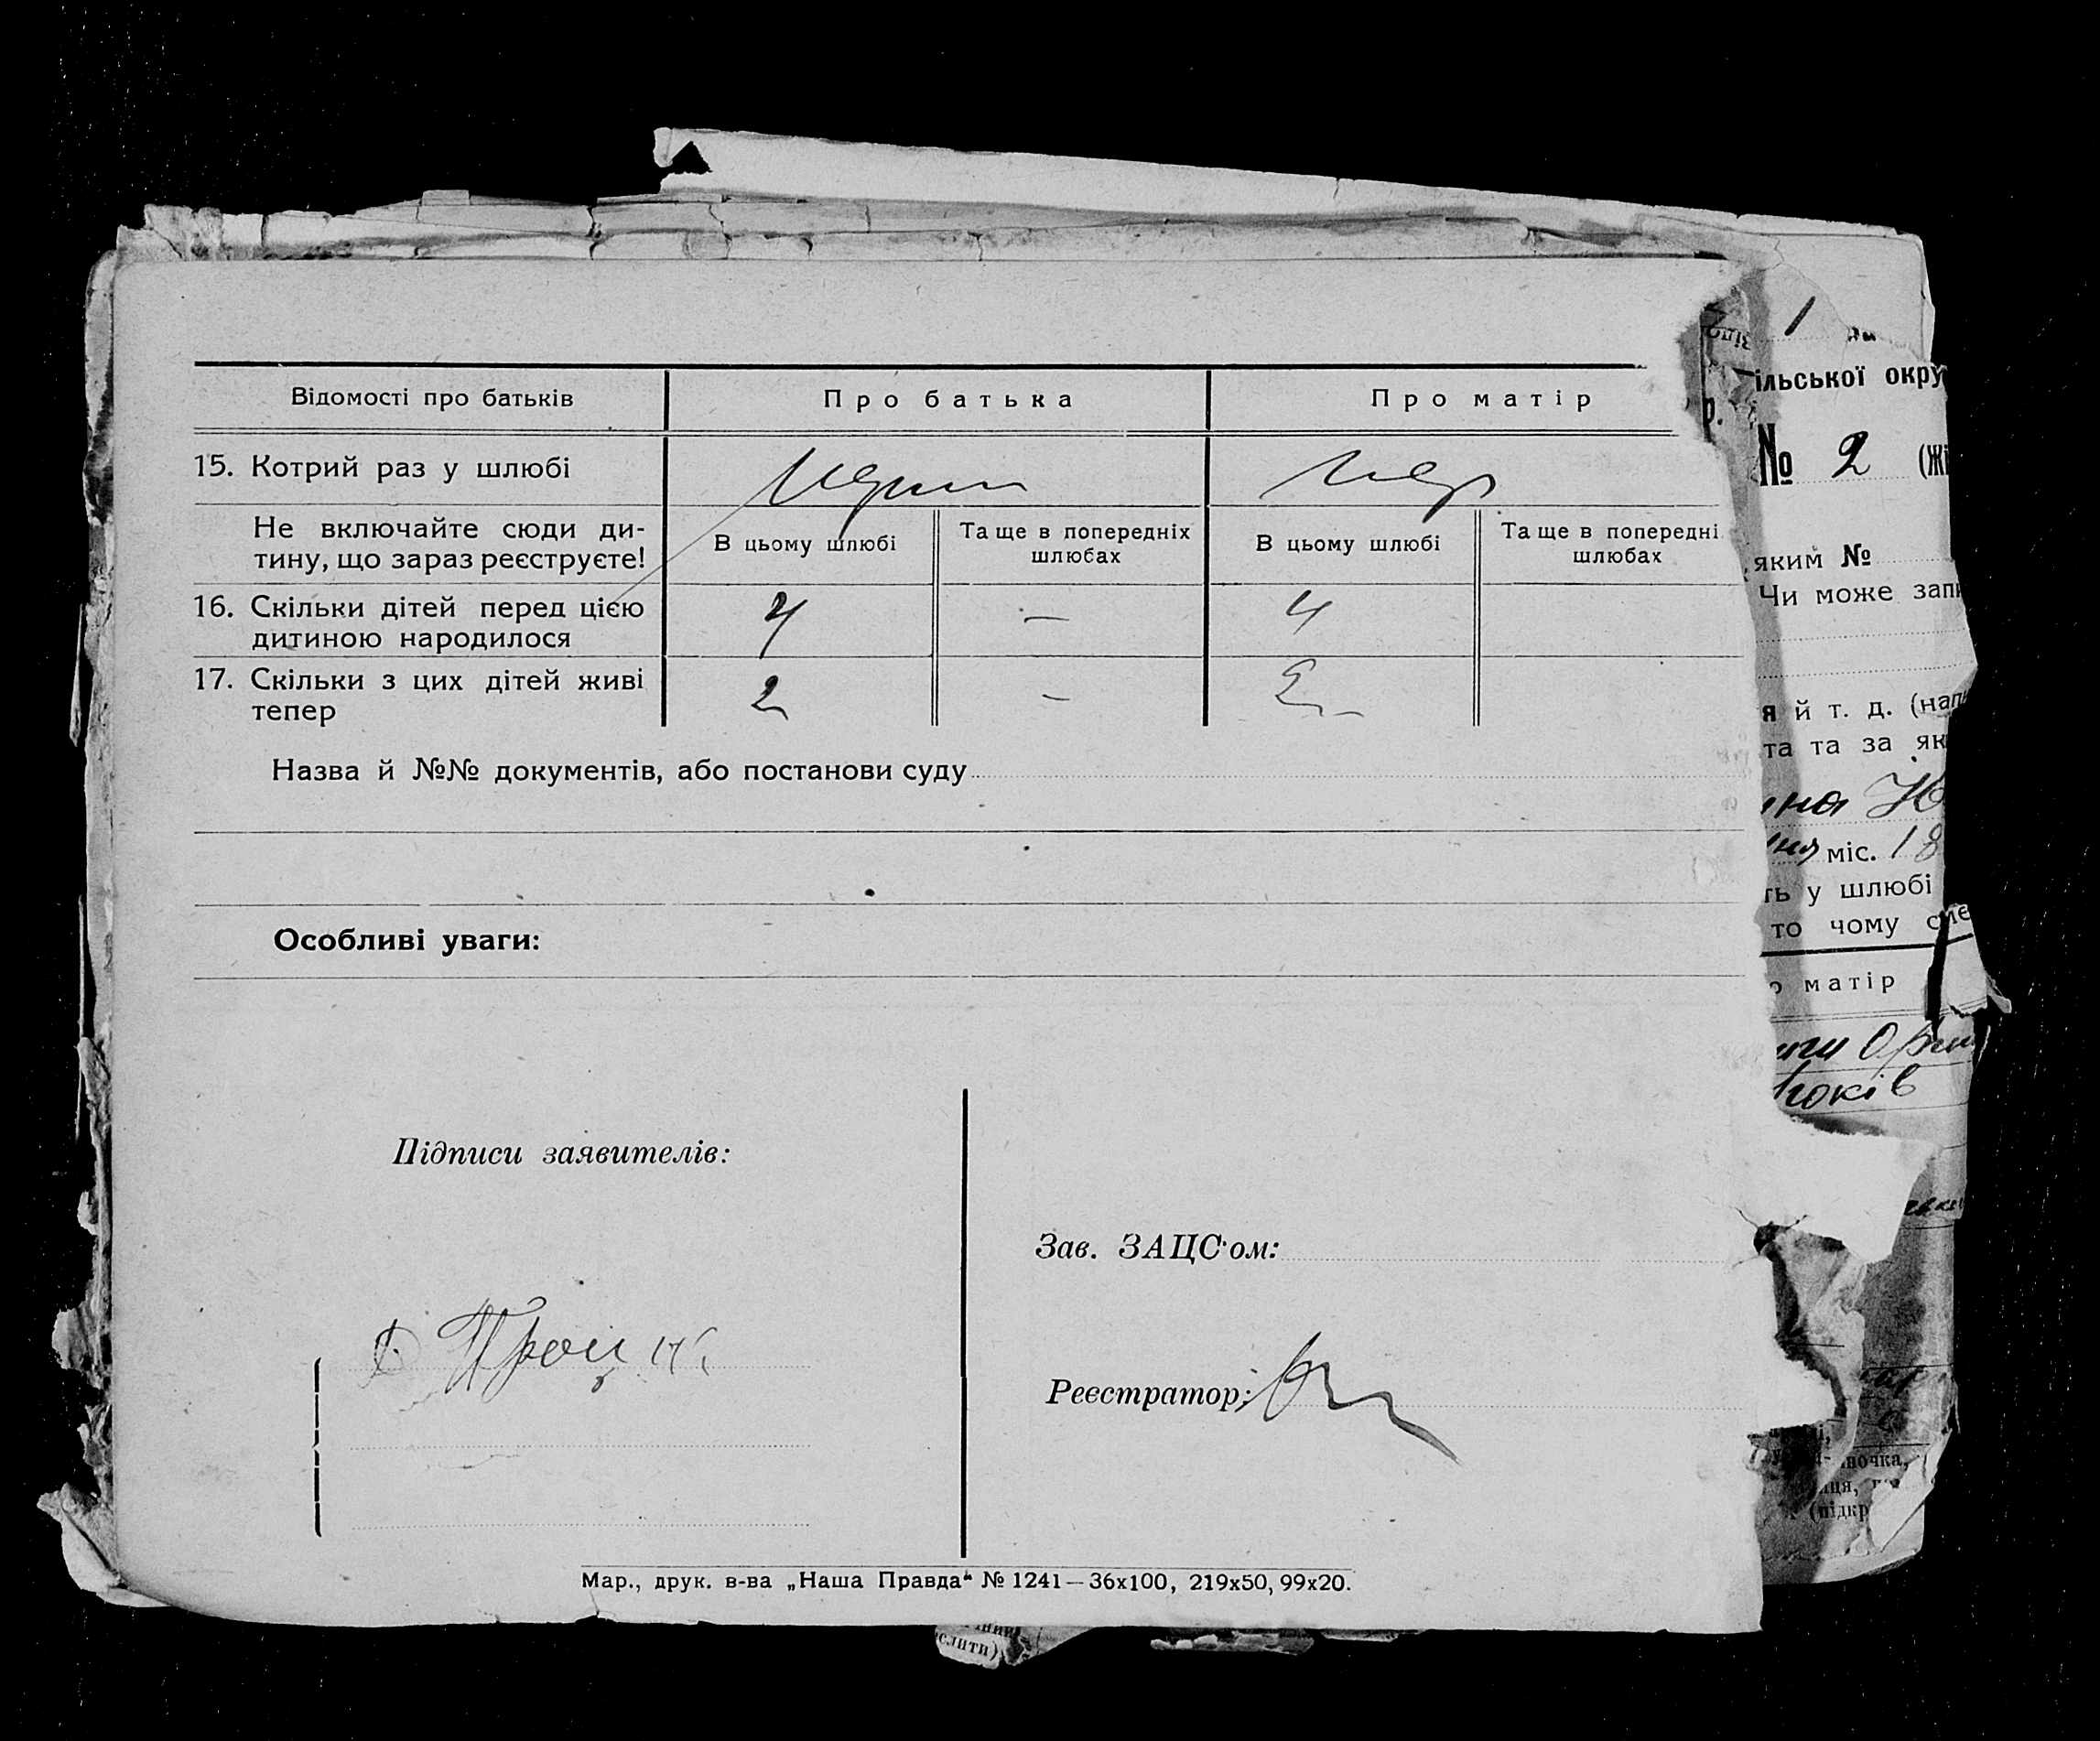 Відомості про батьків
Про батька
Про матір
15. Котрий раз у шлюбі
пер
Не включайте сюди ди-
тину, що зараз реєструєте!
В цьому шлюбі
Та ще в попередніх
шлюбах
В цьому шлюбі
Та ще в попередні
шлюбах
16. Скільки дітей перед цією
дитиною народилося
4
—
4
17. Скільки з цих дітей живі
тепер
2
-
2
Назва й №№ документів, або постанови суду
Особливі уваги:
Підписи заявителів:
Зав. ЗАЦС'ом:
Реєстратор:
Мар., друк. в-ва „Наша Правда“ № 1241—36х100, 219х50, 99х20.
1
ільської окру
№ 2 (Жі
яким №
Чи може запи
я й т. д. (напи
та та за як
на
міс. 18
ть у шлюбі
то чому
матір
років
ночка,
(підкр
слити)